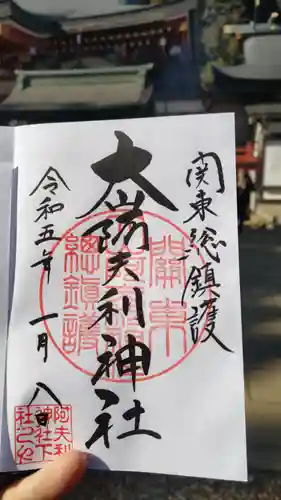 関東総鎮護
大山阿夫利神社
令和五年 一月 八日
關東
總鎮護
阿夫利
神社下
社之印